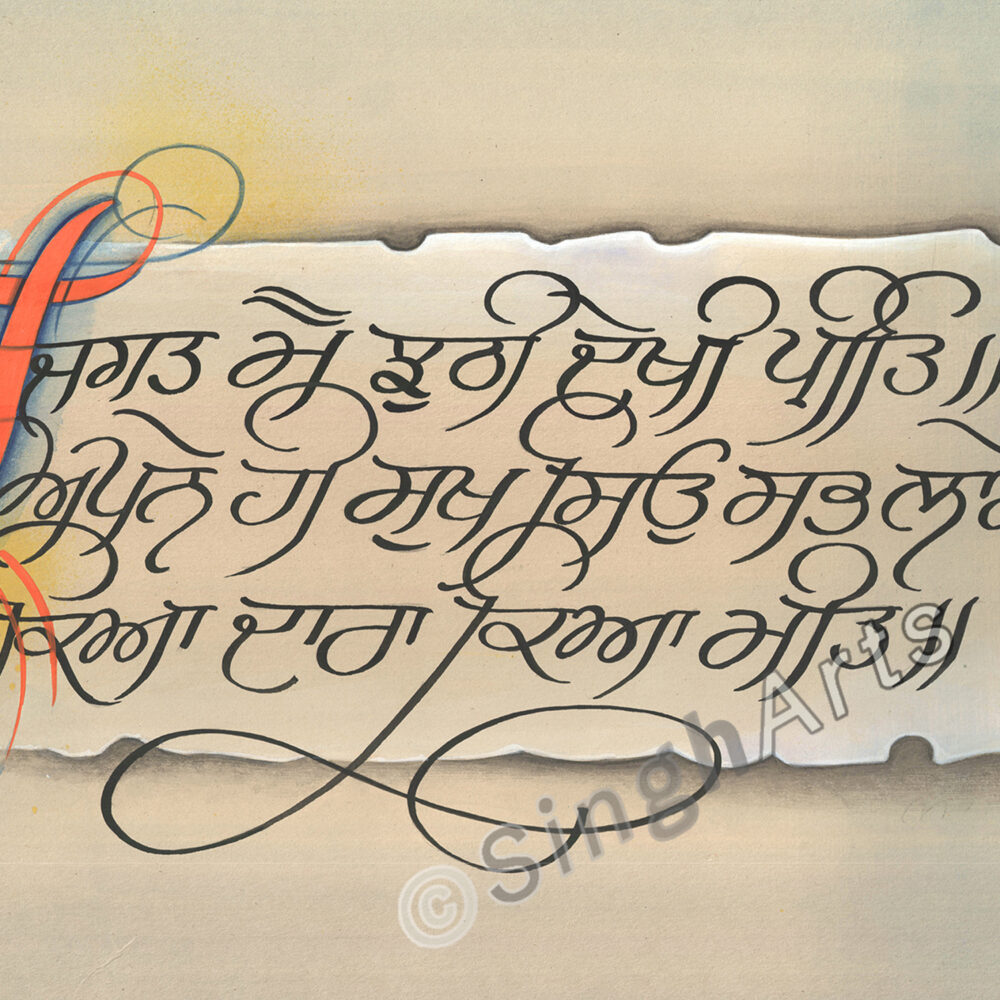 ਜਗਤ ਮੈ ਝੂਠੀ ਦੇਖੀ ਪ੍ਰੀਤਿ॥
ਅਪਨੇ ਹੀ ਸੁਖ ਸਿਉ ਸਭ
ਕਿਆ ਦਾਰਾ ਕਿਆ ਮੀਤ॥
© SinghArts